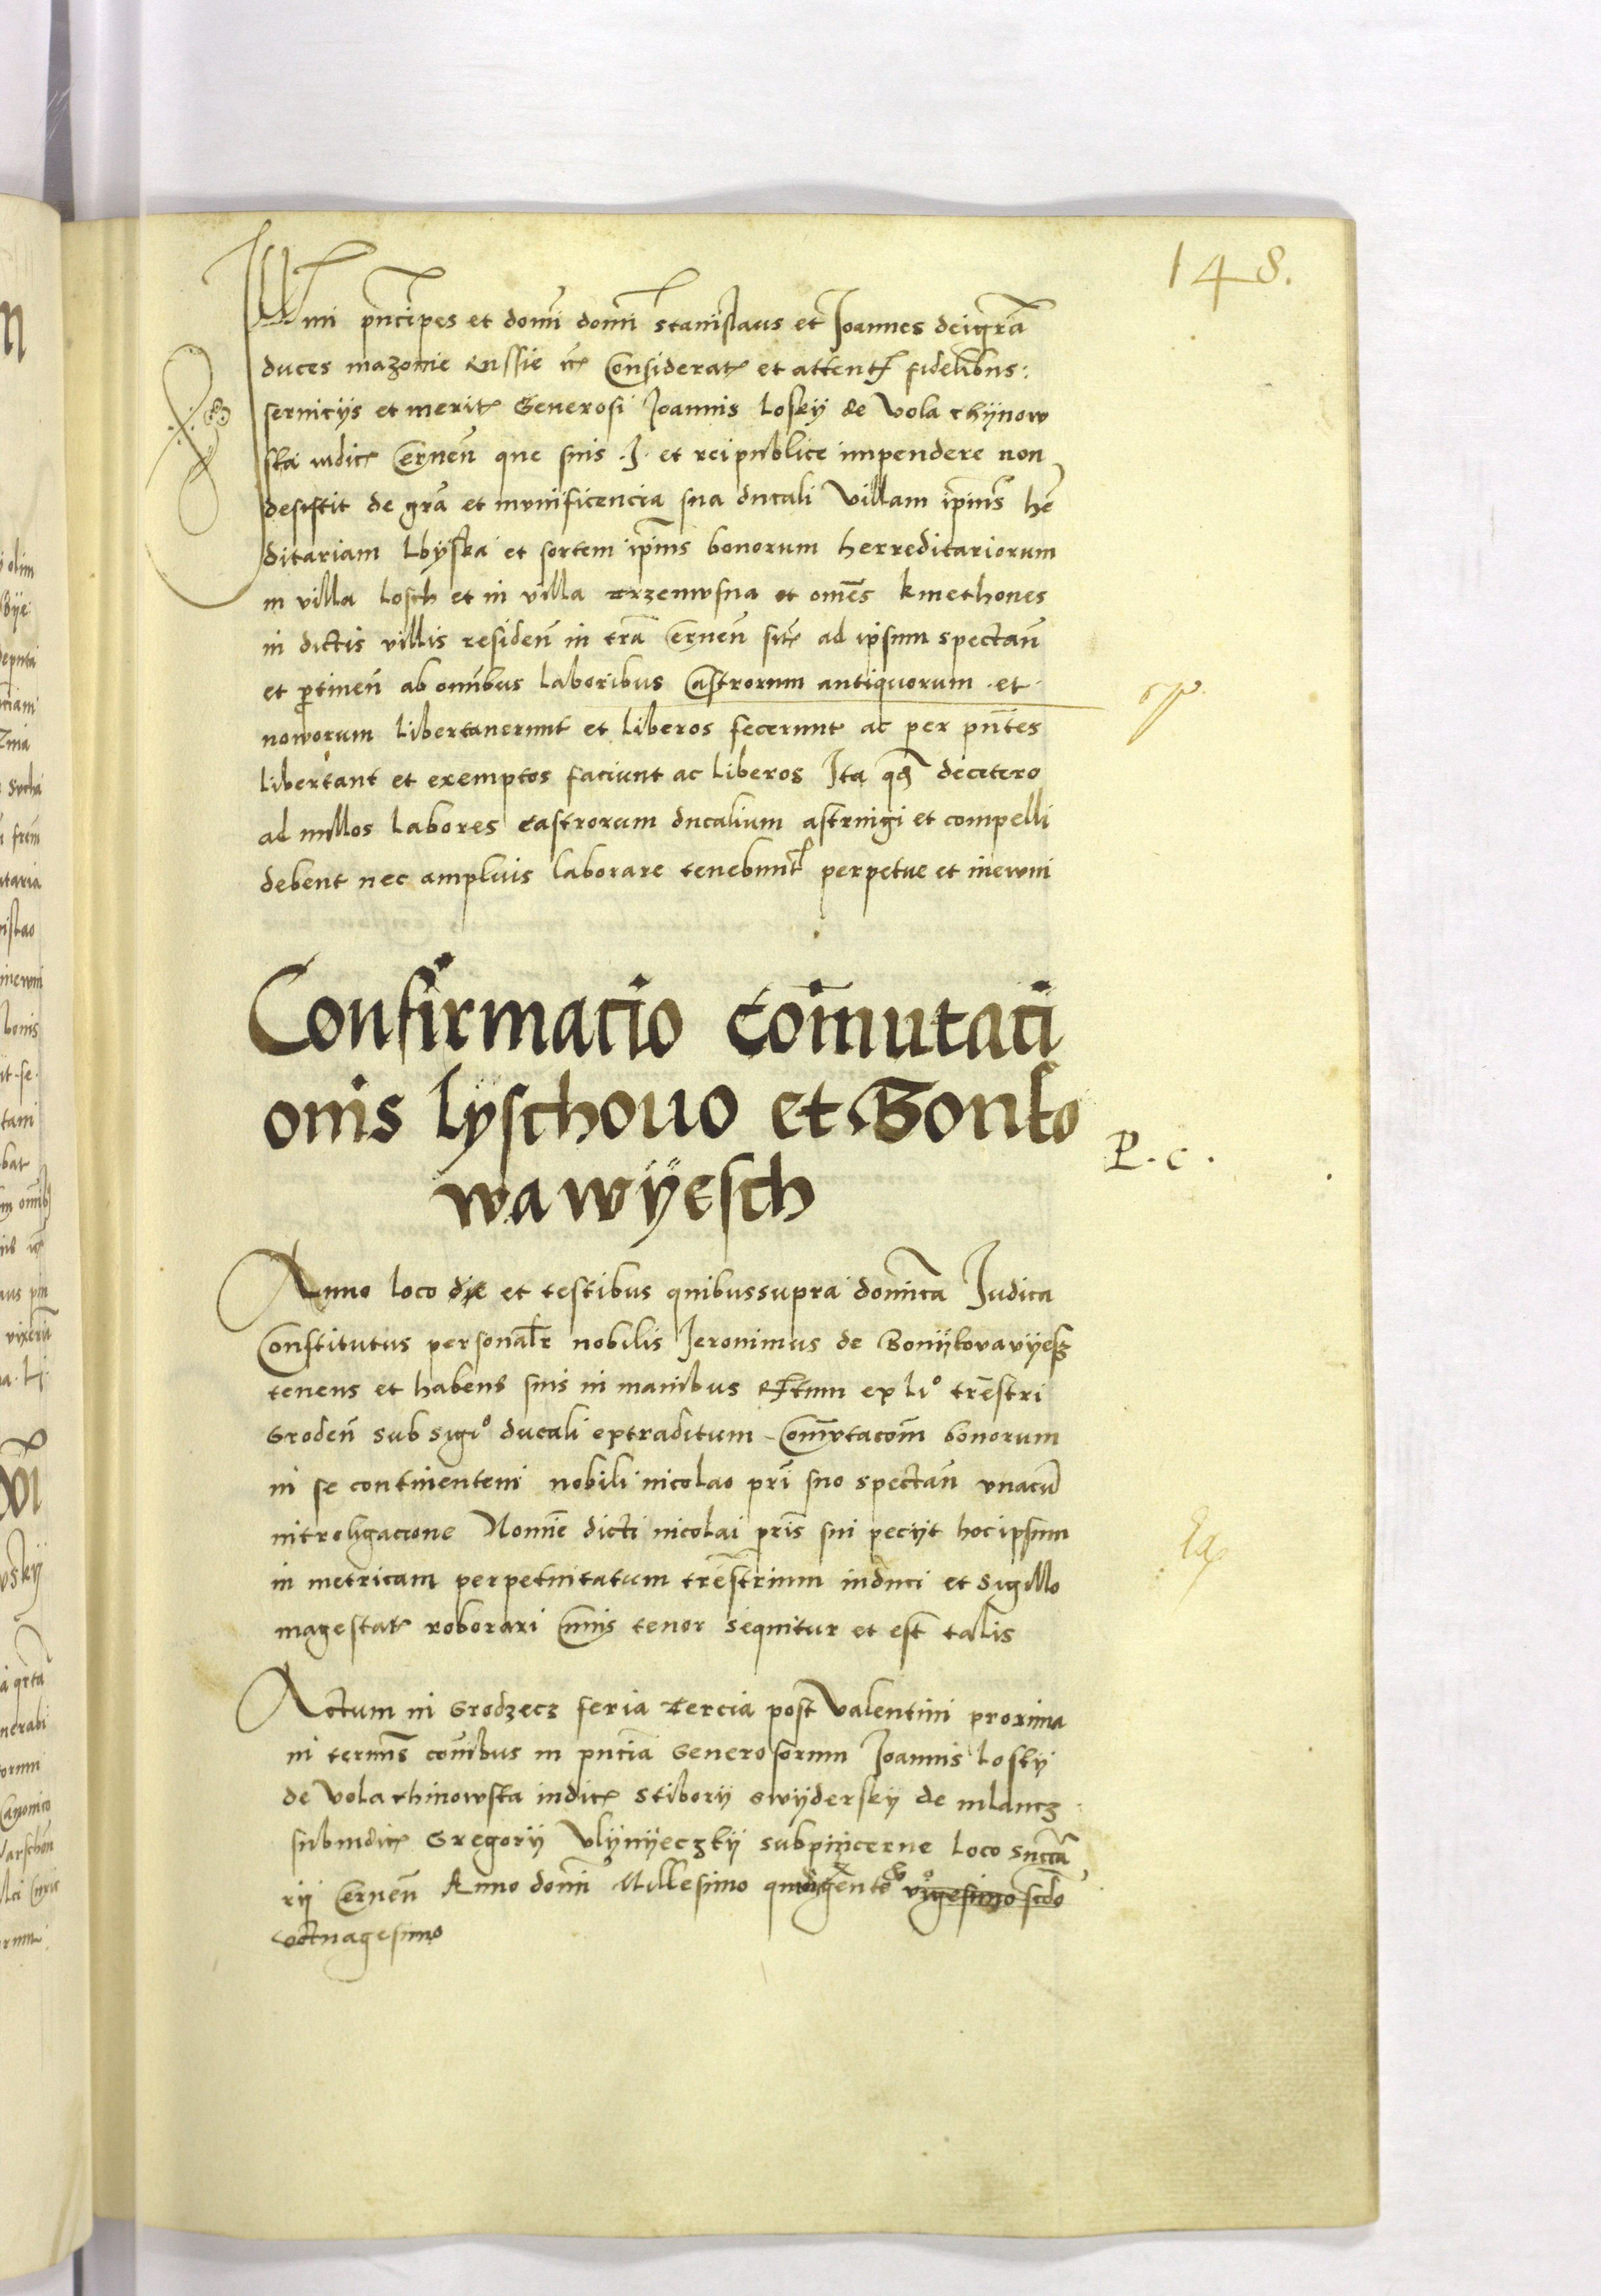 148.
Illmi pncipes et domi domi Stanislaus et Joannes deigra
duces mazovie Russie etc Considerat et attent fidelibus:
serviciis et merit Generosi Joannis Loskÿ de Vola chÿnow
ska iudic Cernen que suis .J. et reipublice impendere non
desistit de gra et munificencia sua ducali Villam ipius he
ditariam Lbÿska et sortem ipius bonorum herreditariorum
in villa Losch et in villa trzenwsna et omes kmethones
in dictis villis residen in tra Cernen sit ad ipsum spectan
et ptinen ab omibus laboribus Castrorum antiquorum .et.
noworum libertaverunt et liberos fecerunt ac per pntes
libertant et exemptos faciunt ac liberos Ita qd decetero
ad nullos labores castrorum ducalium astringi et compelli
debent nec amplius laborare tenebunt perpetue et inewni
Confirmacio Comutaci
onis lÿschovo et Bonko
wawÿesch
P. c.
Anno loco die et testibus quibussupra domica Judica
Constitutus personalr nobilis Jeronimus de Bonijkovavÿesz
tenens et habens suis in manibus Actum ex lio trestri
Groden sub sigio ducali extraditum Comutacom bonorum
in se continentem nobili nicolao pri suo spectan vnacu
introligacione Nomie dicti nicolai pris sui peciit hoc ipsum
in metricam perpetuitatum trestrium induci et sigillo
magestat roborari Cuius tenor sequitur et est talis
Actum in Grodzecz feria tercia post Valentini proxima
in termis comibus in pncia Generosorum Joannis Loskÿ
de Vola chinowska iudic Stiborii Swÿderskÿ de mlancz
subiudic Gregorii Vlÿnÿeczkÿ subpincerne loco Succa
rii Cernen Anno domi Millesimo quadgente vigesimo scdo
octuagesimo